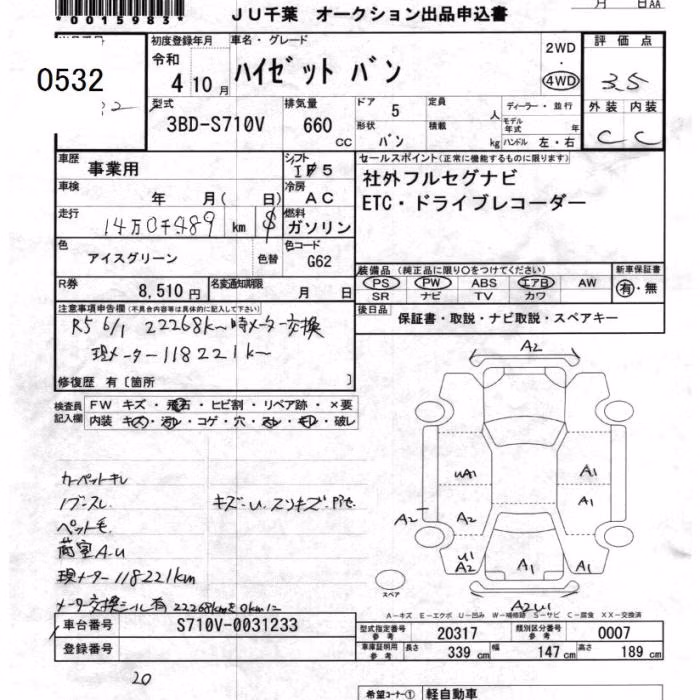 *0015983*
JU千葉 オークション出品申込書
月 日AA
0532
初度登録年月
令和
4 10月
車名・グレード
ハイゼット バン
2WD
・
4WD
評価点
3.5
型式
3BD-S710V
排気量
660 cc
ドア 5
形状 バン
定員 人
積載 kg
ディーラー・並行
モデル年式 年
ハンドル 左・右
外装 内装
C C
車歴
事業用
シフト
IP5
車検
年 月( 日)
冷房
AC
走行
14万0千489 km $
燃料
ガソリン
色
アイスグリーン
色替
色コード
G62
R券
8,510円
名変通知期限
月 日
セールスポイント(正常に機能するものに限ります)
社外フルセグナビ
ETC・ドライブレコーダー
装備品 (純正品に限り○をつけてください)
PS PW ABS エアB AW
SR ナビ TV カワ
新車保証書
有・無
後日品
保証書・取説・ナビ取説・スペアキー
注意事項申告欄(不具合内容等は具体的に記入して下さい)
R5 6/1 22268k~時メーター交換
現メーター118221k~
修復歴 有〔箇所 〕
検査員記入欄
FW キズ・飛石・ヒビ割・リペア跡・×要
内装 キズ・汚レ・コゲ・穴・スレ・キレ・破レ
カーペットキレ
ノブスレ
キズ・U、スリキズ
ペット毛
荷室A・U
現メーター118221km
メーター交換シール有 22268kmを0kmに
A2
UA1
A1
A1
A2
A2
U1
A2
A1
A1
A2U1
スペア
A-キズ E-エクボ U-凹み W-補修跡 S-サビ C-腐食 XX-交換済
車台番号
S710V-0031233
登録番号
型式指定番号 参考
20317
類別区分番号 参考
0007
車庫証明用 参考
長さ 339 cm 幅 147 cm 高さ 189 cm
20
希望コーナー① 軽自動車